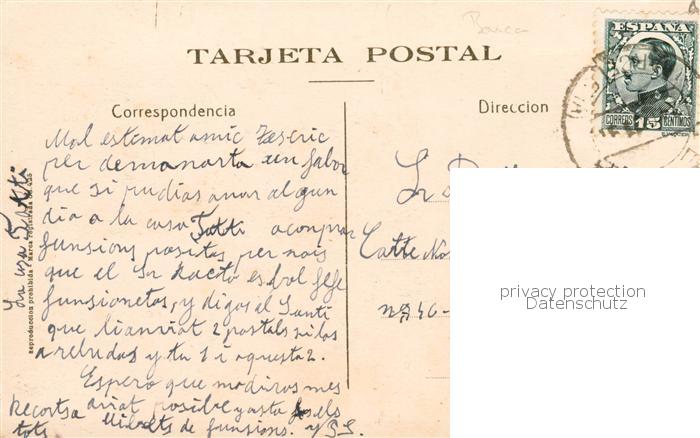 Barca
TARJETA POSTAL
ESPAÑA
CORREOS 15 CENTIMOS
Correspondencia
Direccion
Mol estemat amic
per demanarta un fabor
que si pudias anar algun
dia a la casa Totti a comprar
funsions positas per nois
que el Sr
funsionetas, y digas al Santi
que li anviat 2 postals si las
a rebudas y tu 1 i aquesta 2.
Espero que mes
aviat posible y asta els
Recorts a tots llibrets de funsions. y SS.
La casa
reproduccion prohibida Marca registrada
Sr
Calle
nº 46-
privacy protection
Datenschutz